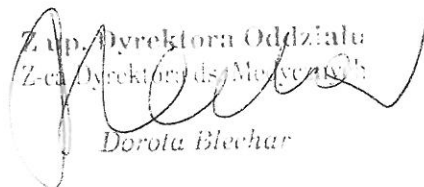 Z up. Dyrektora Oddziału
Z-ca Dyrektora ds. Medycznych
Dorota Blechar